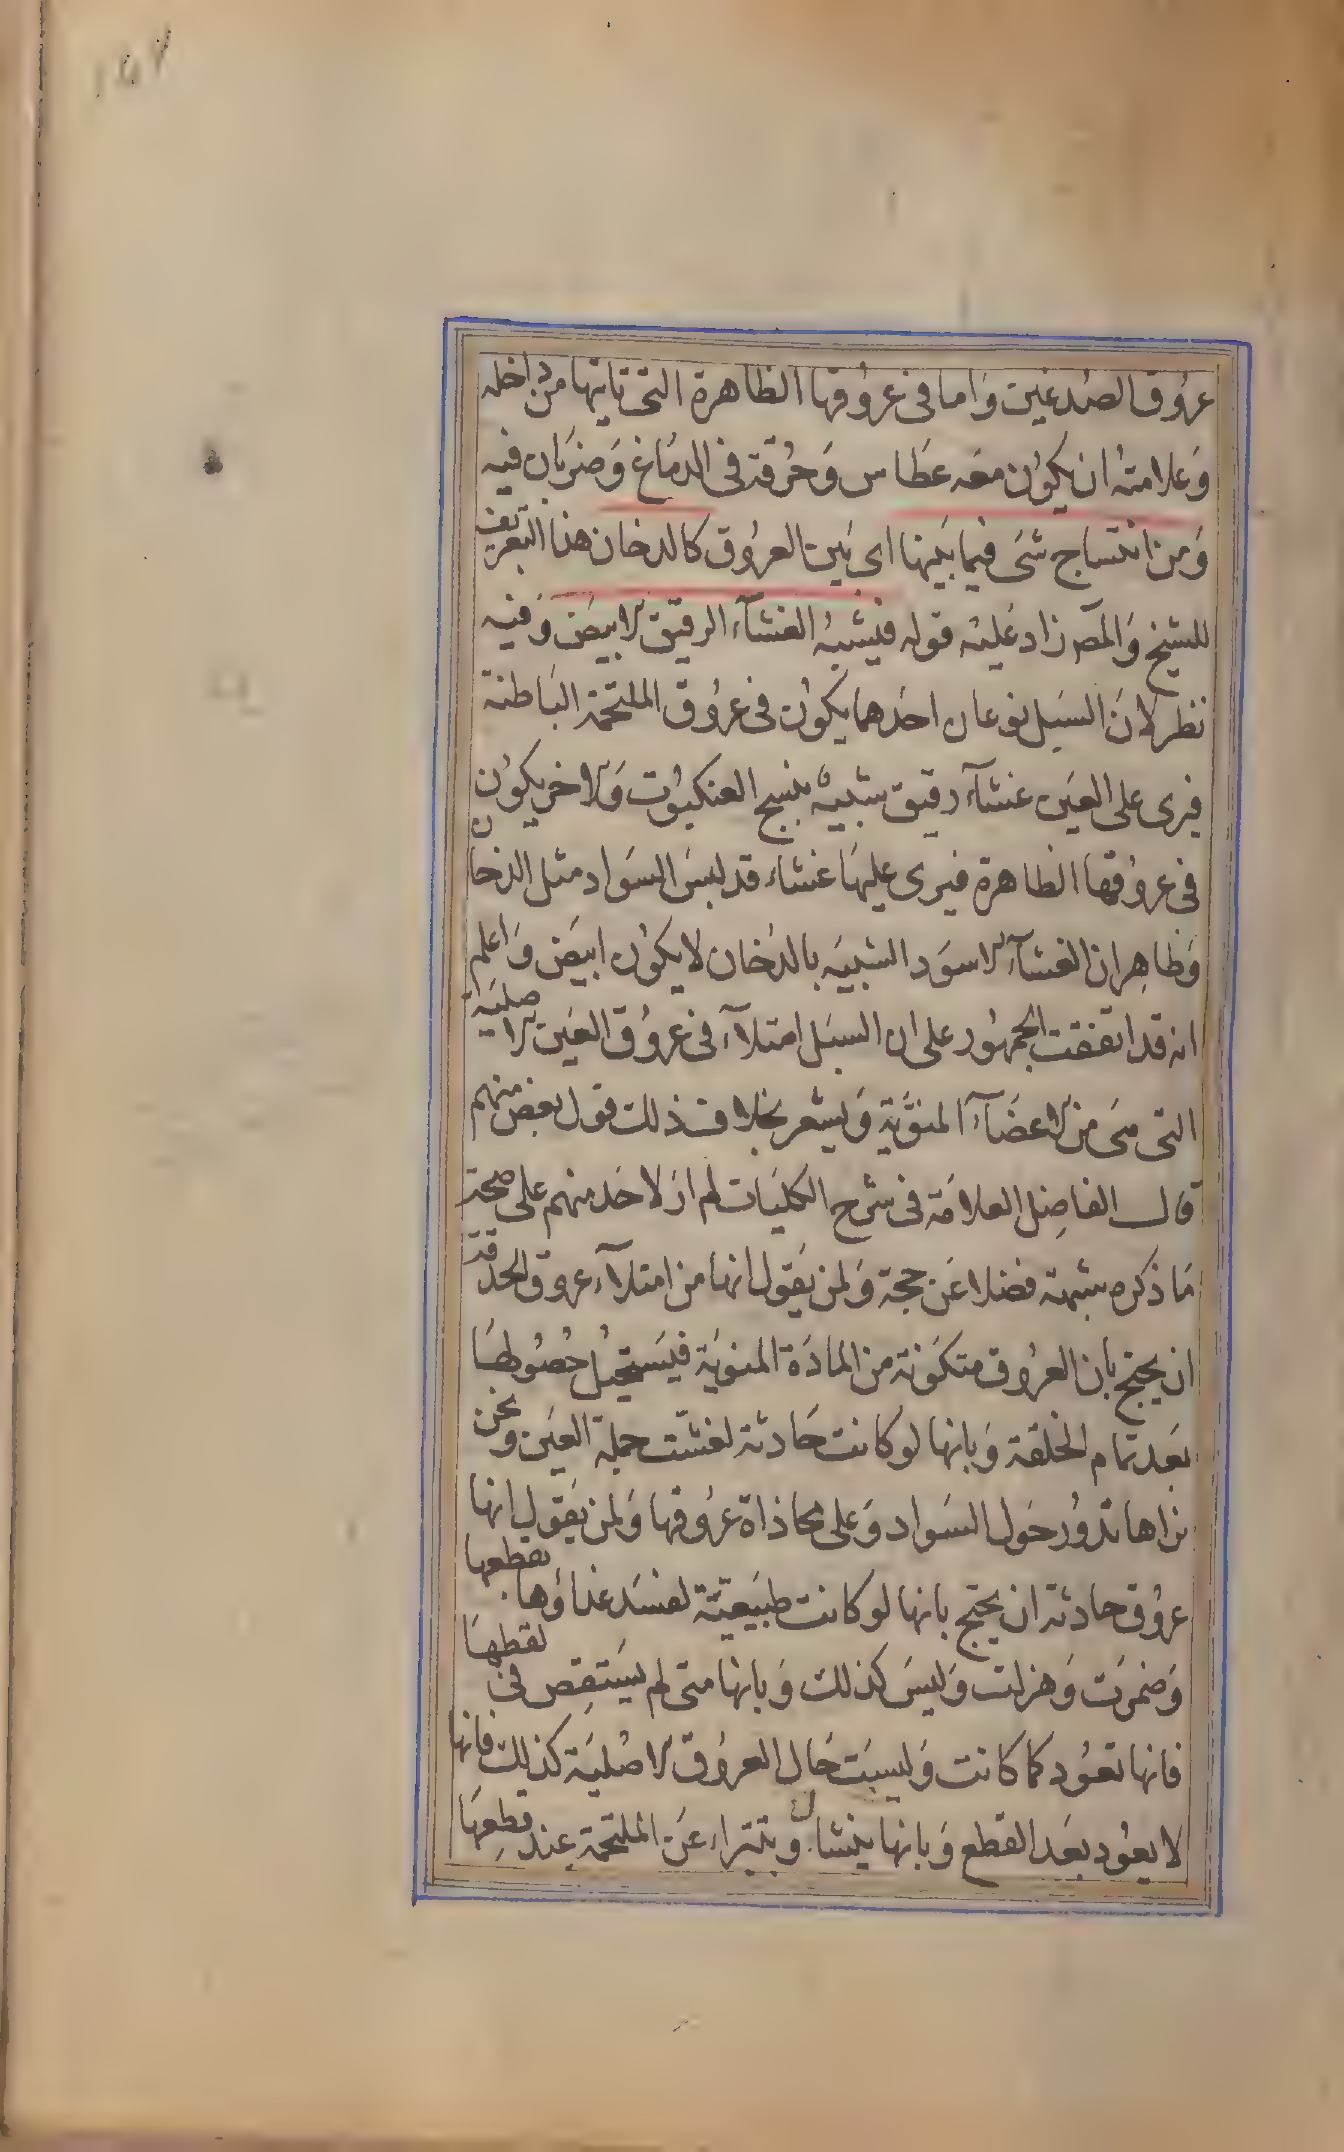 ١٥٧
عروق الصدغين واما فى عروقها الظاهرة التى تاتيها من داخله
وعلامته ان يكون معه عطاس وحرقة فى الدماغ وضربان فيه
ومن انتساج شى فيما بينها اى بين العروق كالدخان هذا التعريف
للشيخ والمصـ زاد عليه قوله فيشبه الغشآء الرقيق الابيض وفيه
نظر لان السبل نوعان احدهما يكون فى عروق الملتحمة الباطنة
فيرى على العين غشآء رقيق شبيه بنسج العنكبوت والاخر يكون
فى عروقها الظاهرة فيرى عليها غشاء قد لبس السواد مثل الدخان
وظاهر ان الغشآء الاسود الشبيه بالدخان لا يكون ابيض واعلم
انه قد اتفقت الجمهور على ان السبل امتلآء فى عروق العين الاصلية
التى هى من الاعضآء المنوية ويشعر بخلاف ذلك قول بعض منهم
قال الفاضل العلامة فى شرح الكليات لم ار لاحد منهم على صحة
ما ذكره شبهة فضلا عن حجة ولمن يقول انها من امتلآء عروق الحدقة
ان يحتج بان العروق متكونة من المادة المنوية فيستحيل حصولها
بعد تمام الخلقة وبانها لو كانت حادثة لغشت جملة العين ونحن
نراها تدور حول السواد وعلى محاذاة عروقها ولمن يقول انها
عروق حادثة ان يحتج بانها لو كانت طبيعية لفسد غذاؤها بقطعها
وضمرت وهزلت وليس كذلك وبانها متى لم يستقص فى لقطها
فانها تعود كما كانت وليست حال العروق الاصلية كذلك فانها
لا يعود بعد القطع وبانها ينشال ويتبراء عن الملتحمة عند قطعها